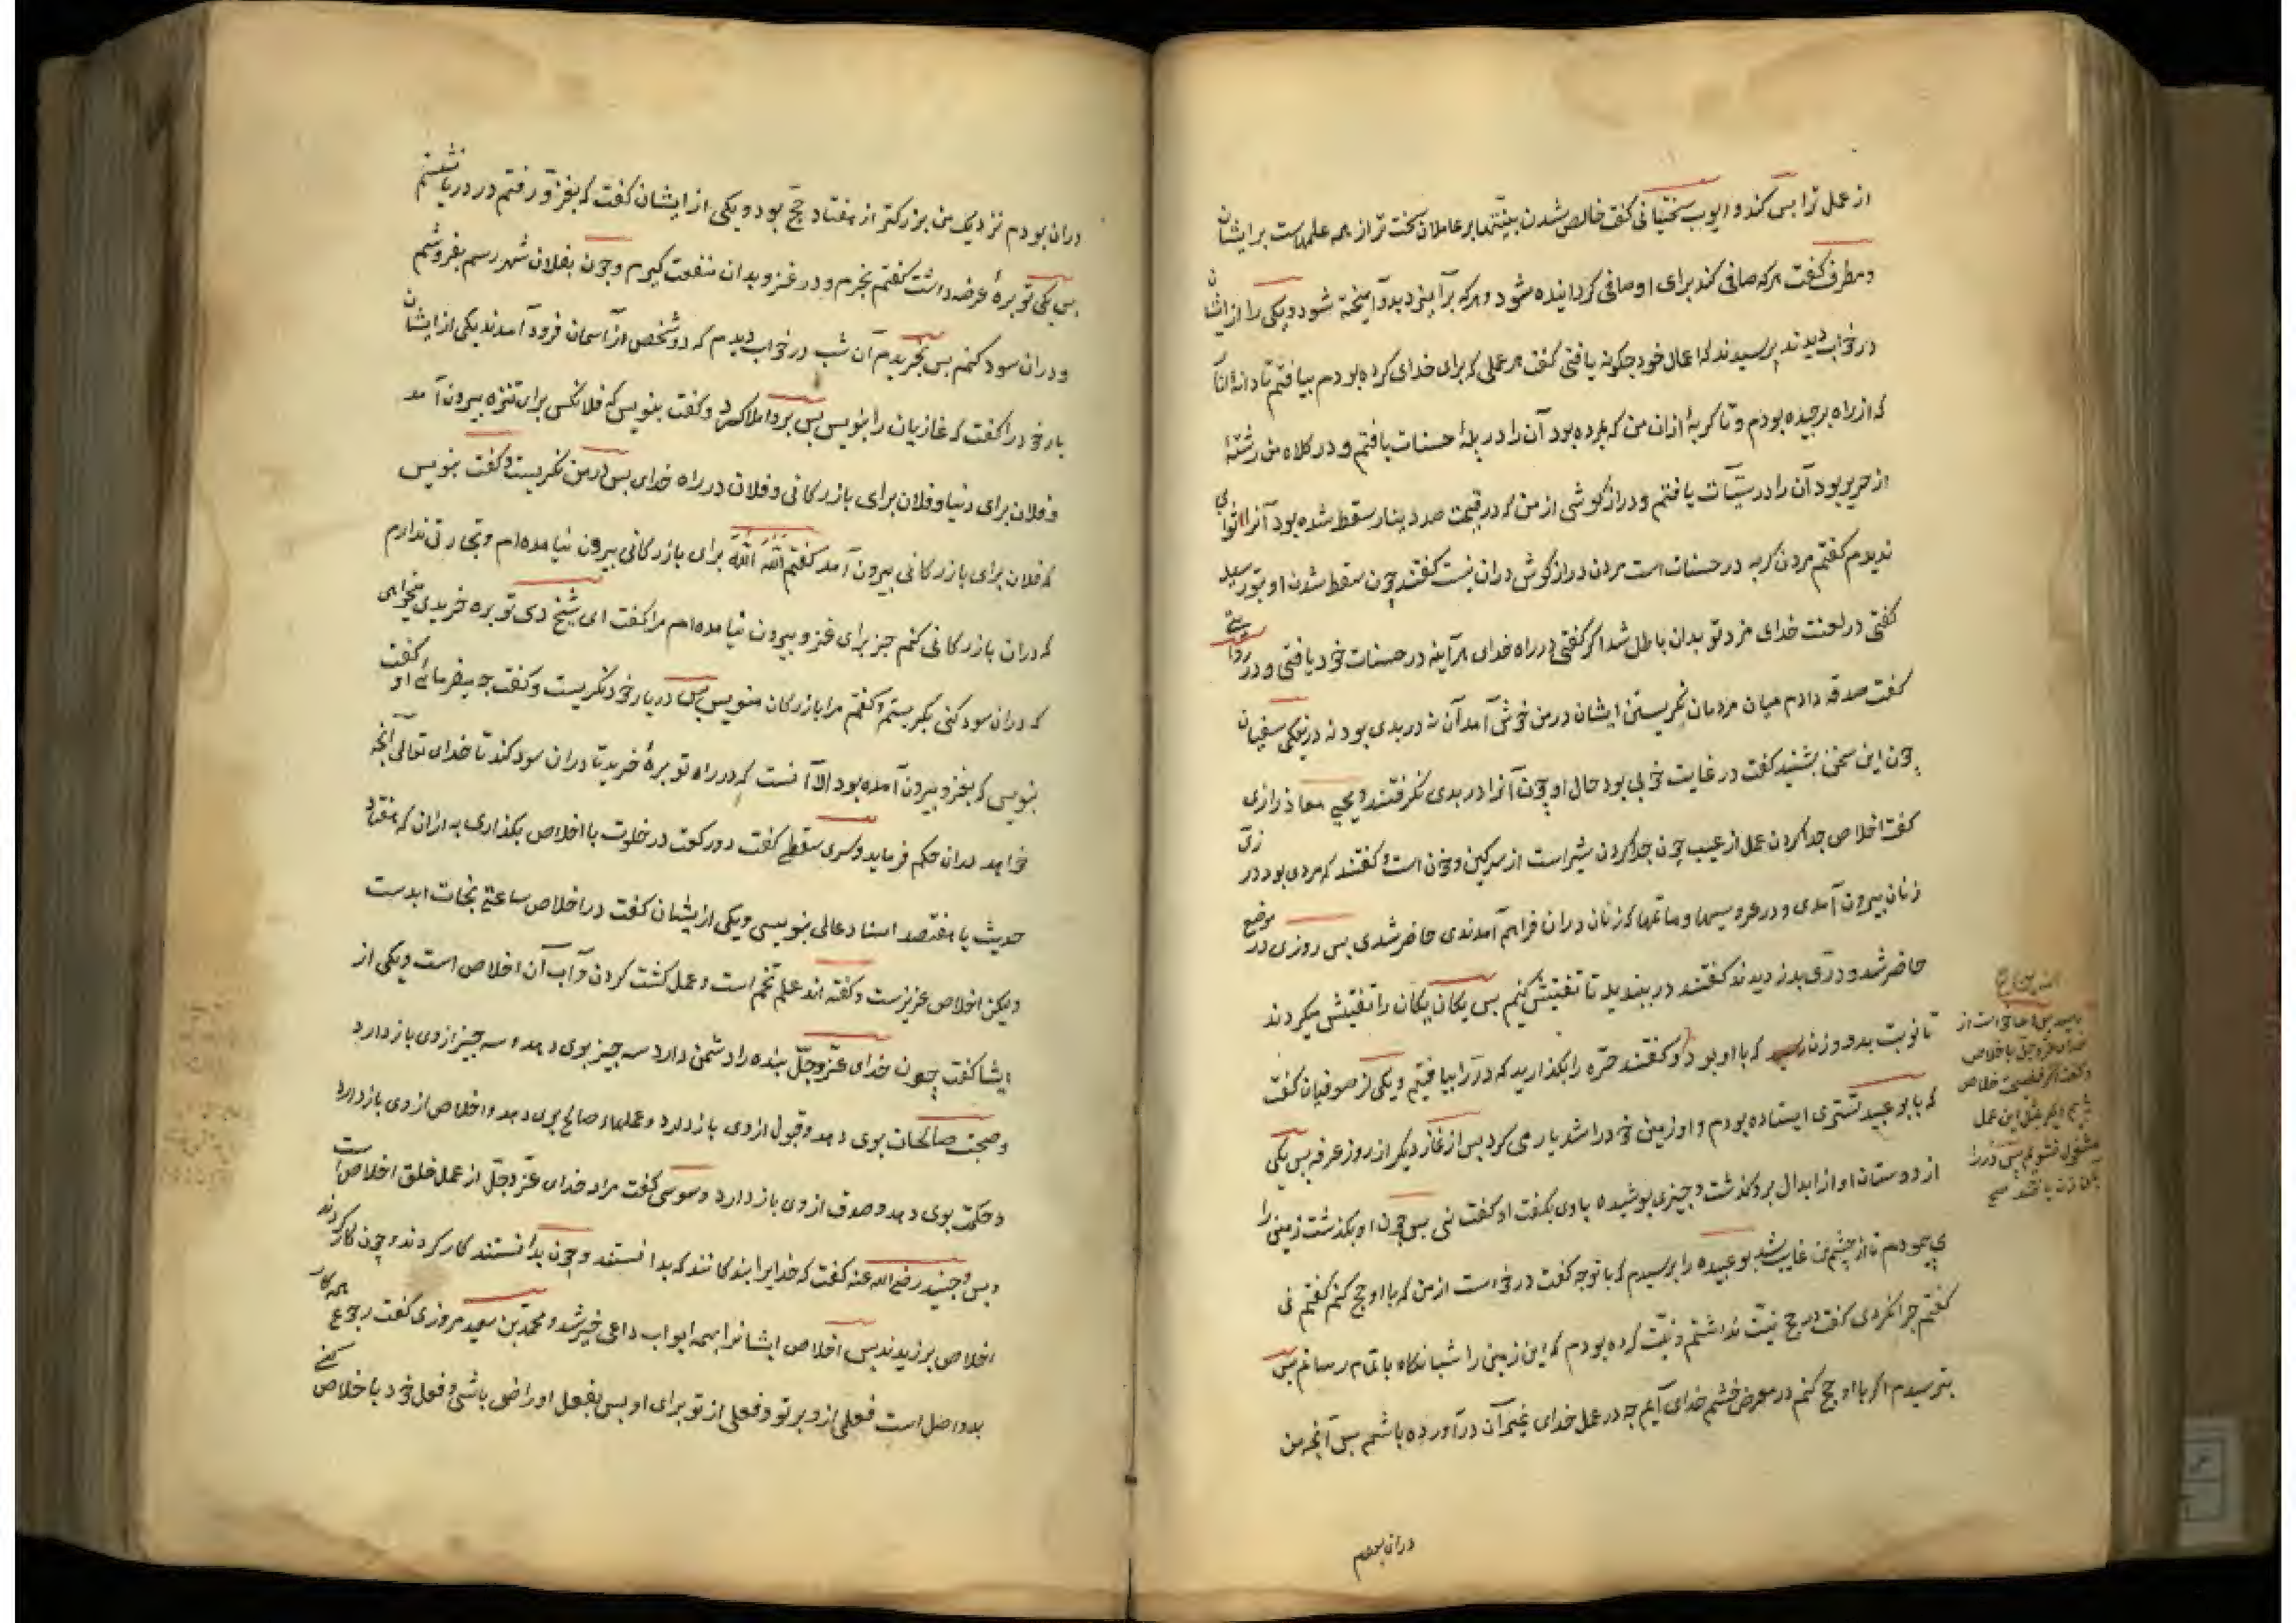 از عمل ترا بس کند و ایوب سختیانی کفت خالص شدن نیتها بر عاملان سخت تر از همه عملهاست بر ایشان
و مطرف کفت هرکه صافی کند برای او صافی کردانیده شود و هرکه برآمیزد بدو آمیخته شود و یکی را از ایشان
در خواب دیدند پرسیدند که اعمال خود چکونه یافتی کفت هر عملی که برای خدای کرده بودم بیافتم تا دانهٔ انار
که از راه برچیده بودم و تا کربهٔ ازان من که بمرده بود آن را در پلهٔ حسنات یافتم و در کلاه من رشتهٔ
از حریر بود آن را در سیّآت یافتم و درازکوشی از من که در قیمت صد دینار سقط شده بود آنرا ثوابی
ندیدم کفتم مردن کربه در حسنات است مردن درازکوش دران نیست کفتند چون سقط شدن او بتو رسید
کفتی در لعنت خدای مزد تو بدان باطل شد اکر کفتی در راه خدای هرآینه در حسنات خود یافتی و در روایتی
کفت صدقه دادم میان مردمان نکریستن ایشان در من خوشی آمد آن نه در بدی بود نه در نیکی سفیان
چون این سخن بشنید کفت در غایت خوبی بود حال او چون آنرا در بدی نکرفتند و یحیی معاذ رازی
کفت اخلاص جدا کردن عمل از عیب چون جدا کردن شیر است از سرکین و خون است و کفتند که مردی بود در زی
زنان بیرون آمدی و در عروسیها و ماتمها که زنان دران فراهم آمدندی حاضر شدی پس روزی در موضع
حاضر شد و درّی بدزدیدند کفتند در ببندید تا تفتیش کنیم بس یکان یکان را تفتیش میکردند
تا نوبت بدو و زنی رسید که با او بود و کفتند حرّه را بکذارید که درّ را بیافتیم و یکی از صوفیان کفت
که با بو عبید تستری ایستاده بودم و او زمین خود را شدیار می کرد بس از نماز دیکر از روز عرفه بس یکی
از دوستان او از ابدال برو کذشت و چیزی پوشیده با وی بکفت او کفت نی بس چون او بکذشت زمین را
می پیمودم تا از چشم من غایب شد بو عبیده را پرسیدم که با تو چه کفت درخواست از من که با او حج کنم کفتم نی
کفتم چرا نکردی کفت در حج نیّت نداشتم و نیّت کرده بودم که این زمین را شبانکاه باتمام رسانم بس
بترسیدم اکر با او حج کنم در معرض خشم خدای آیم چه در عمل خدای غیر آن درآورده باشم بس آنچه من
دران بودم
دران بودم نزدیک من بزرکتر از هفتاد حجّ بود و یکی از ایشان کفت که بغزو رفتم در دریا نشستم
بس یکی توبرهٔ عرضه داشت کفتم بخرم و در غزو بدان منفعت کیرم و چون بفلان شهر رسم بفروشم
و دران سود کنم بس بخریدم آن شب در خواب دیدم که دو شخص از آسمان فرود آمدند یکی از ایشان
یار خود را کفت که غازیان را بنویس بس برو املا کرد و کفت بنویس که فلانکس برای تنزه بیرون آمد
و فلان برای دنیا و فلان برای بازرکانی و فلان در راه خدای بس در من نکریست و کفت بنویس
که فلان برای بازرکانی بیرون آمد کفتم اللّه اللّه برای بازرکانی بیرون نیامده‌ام و تجارتی ندارم
که دران بازرکانی کنم جز برای غزو بیرون نیامده‌ام مرا کفت ای شیخ دی توبره خریدی میخواهی
که دران سود کنی بکریستم و کفتم مرا بازرکان منویس بس در یار خود نکریست و کفت چه میفرمائی او کفت
بنویس که بغزو بیرون آمده بود الّا آنست که در راه توبرهٔ خرید تا دران سود کند تا خدای تعالی آنچه
خواهد دران حکم فرماید و سری سقطی کفت دو رکعت در خلوت با اخلاص بکذاری به ازان که هفتاد
حدیث یا هفتصد اسناد عالی بنویسی و یکی از یشان کفت در اخلاص ساعتی نجات ابدست
ویکن اخلاص عزیزست و کفته اند علم تخم است و عمل کشت کردن و آب آن اخلاص است و یکی از
ایشا کفت چون خدای عزّ وجلّ بنده را دشمن دارد سه چیز بوی دهد و سه چیز از وی باز دارد
و صحبت صالحان بوی دهد و قبول از وی باز دارد و عملهاء صالح بوی دهد و اخلاص از وی باز دارد
و حکمت بوی دهد و صدق از وی باز دارد و سوسی کفت مراد خدای عزّ وجلّ از عمل خلق اخلاص است
و بس و جنید رضی الله عنه کفت که خدایرا بندکانند که بدانستند و چون بدانستند کار کردند و چون کار کردند
اخلاص برزیدند بس اخلاص ایشانرا بهمه ابواب داعی خیر شد و محمد بن سعید مروزی کفت رجوع همه کار
بدو اصل است فعلی ازو بر تو و فعلی از تو برای او بس بفعل او راضی باشی و فعل خود با اخلاص کنی